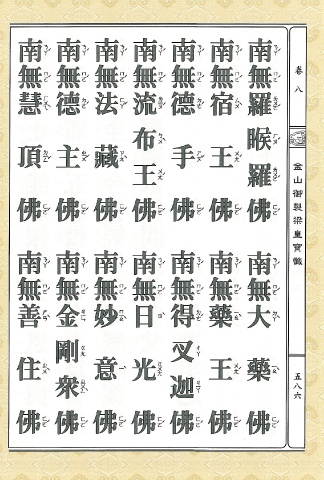 卷八
金山御製梁皇寶懺
五八六
南無羅睺羅佛
南無大藥佛
南無宿王佛
南無藥王佛
南無德手佛
南無得叉迦佛
南無流布王佛
南無日光佛
南無法藏佛
南無妙意佛
南無德主佛
南無金剛衆佛
南無慧頂佛
南無善住佛